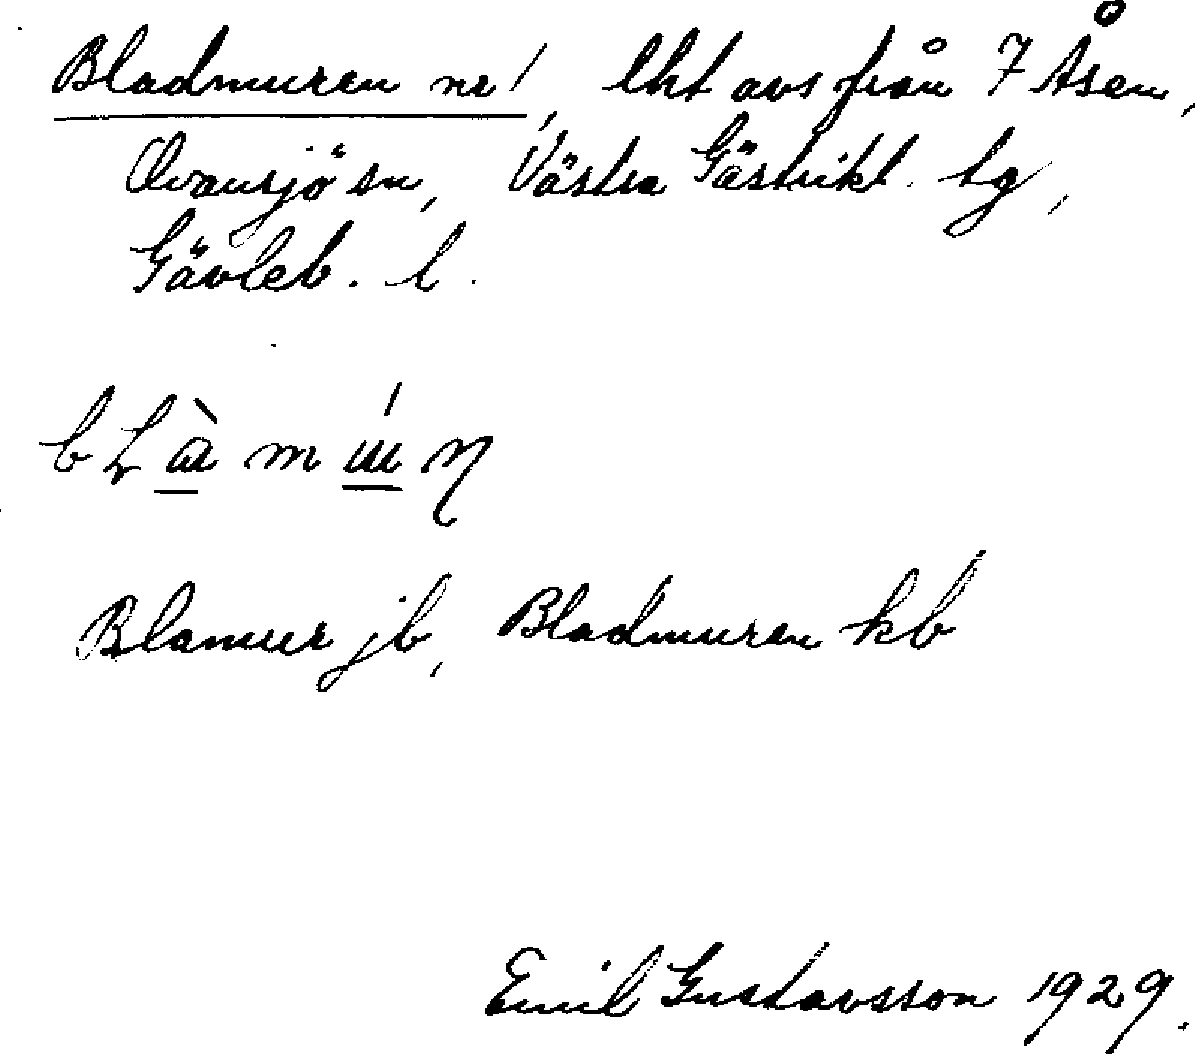 Bladmuren nr 1, lht avs från 7 Åsen,
Ovansjö sn, Västra Gästrikl. tg,
Gävleb. l.
Blamur jb, Bladmuren kb
Emil Gustavsson 1929.